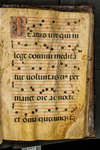 BEatus uir qui in
lege domini medita
tur voluntas eius per
manet die ac nocte
et omnia quecumque